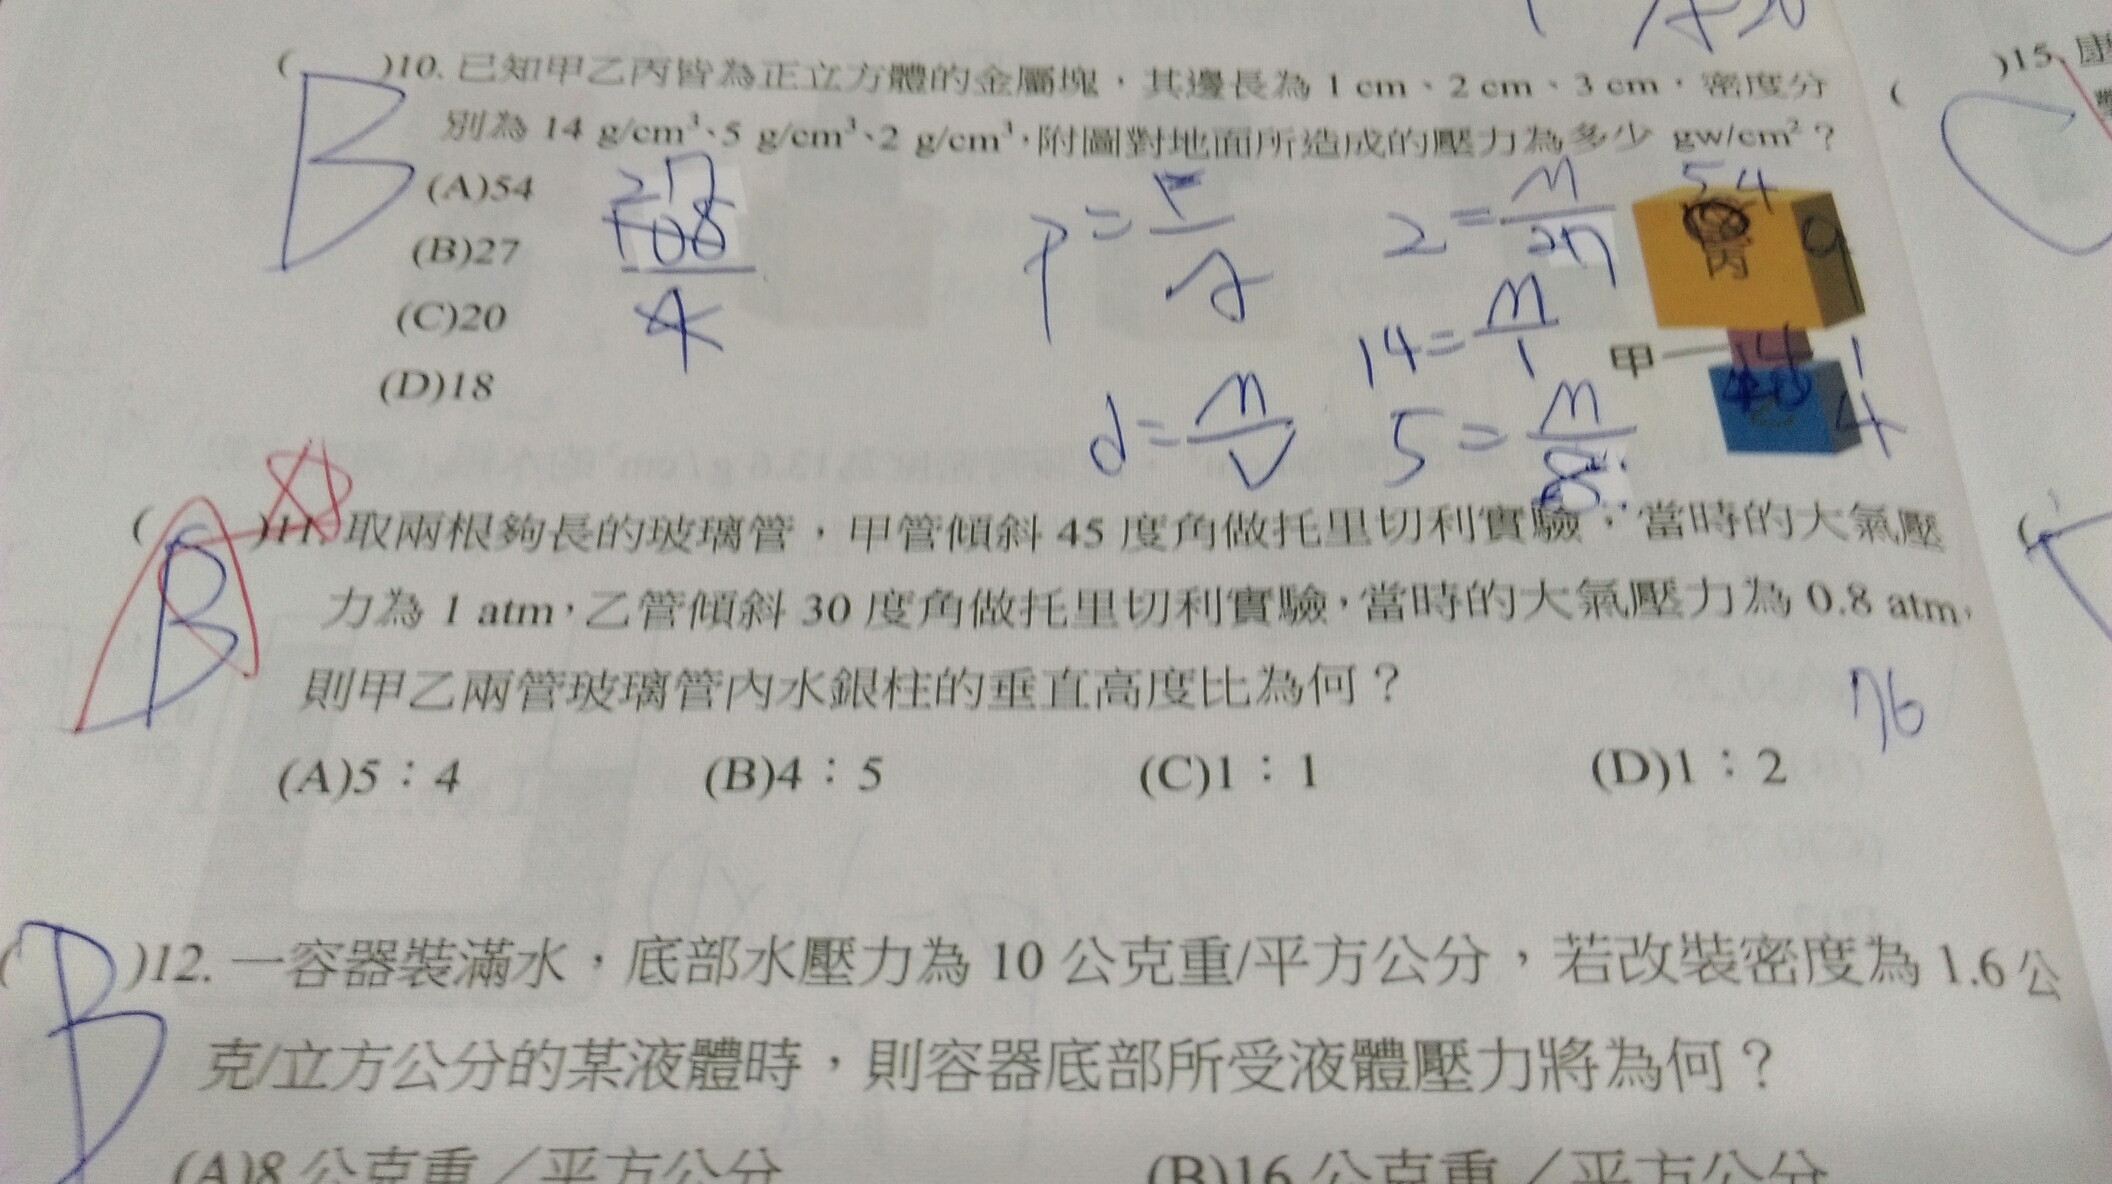 ( B )10. 已知甲乙丙皆為正立方體的金屬塊，其邊長為 1 cm、2 cm、3 cm，密度分
別為 14 g/cm³、5 g/cm³、2 g/cm³，附圖對地面所造成的壓力為多少 gw/cm²？
(A)54
(B)27
(C)20
(D)18
27
108
4
d=m/V
2=m/27
14=m/1
5=m/8
54
丙
9
甲
14
1
4
( B )11. 取兩根夠長的玻璃管，甲管傾斜 45 度角做托里切利實驗，當時的大氣壓
力為 1 atm，乙管傾斜 30 度角做托里切利實驗，當時的大氣壓力為 0.8 atm，
則甲乙兩管玻璃管內水銀柱的垂直高度比為何？
76
(A)5：4 (B)4：5 (C)1：1 (D)1：2
( B )12. 一容器裝滿水，底部水壓力為 10 公克重/平方公分，若改裝密度為 1.6 公
克/立方公分的某液體時，則容器底部所受液體壓力將為何？
(A)8 公克重／平方公分 (B)16 公克重／平方公分
( )15. 康